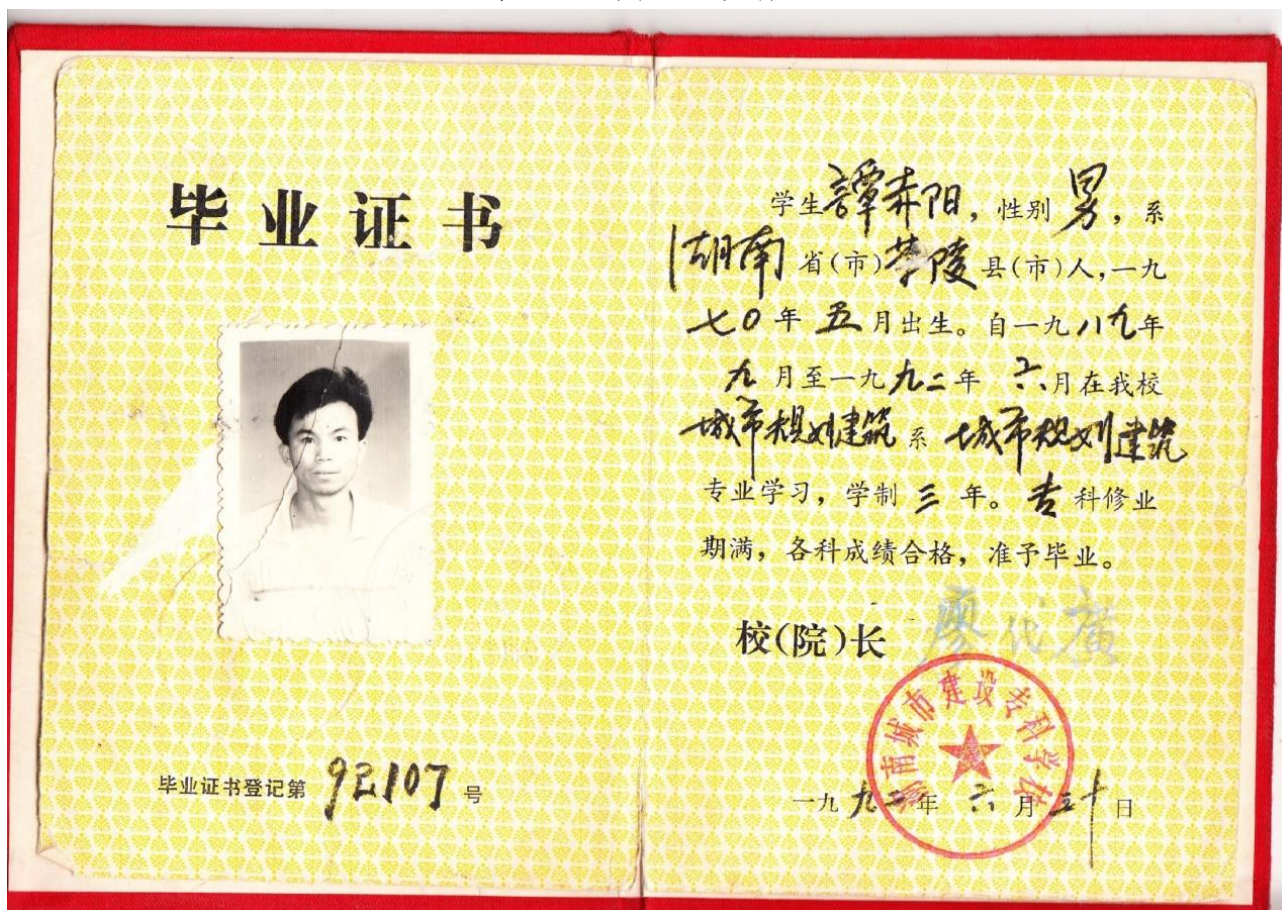 毕业证书
毕业证书登记第 92107 号
学生譚赤阳，性别男，系
湖南省(市)茶陵县(市)人，一九
七0年五月出生。自一九八九年
九月至一九九二年六月在我校
城市规划建筑系城市规划建筑
专业学习，学制三年。专科修业
期满，各科成绩合格，准予毕业。
校(院)长 廖代廣
湖南城市建设专科学校
一九九二年六月三十日